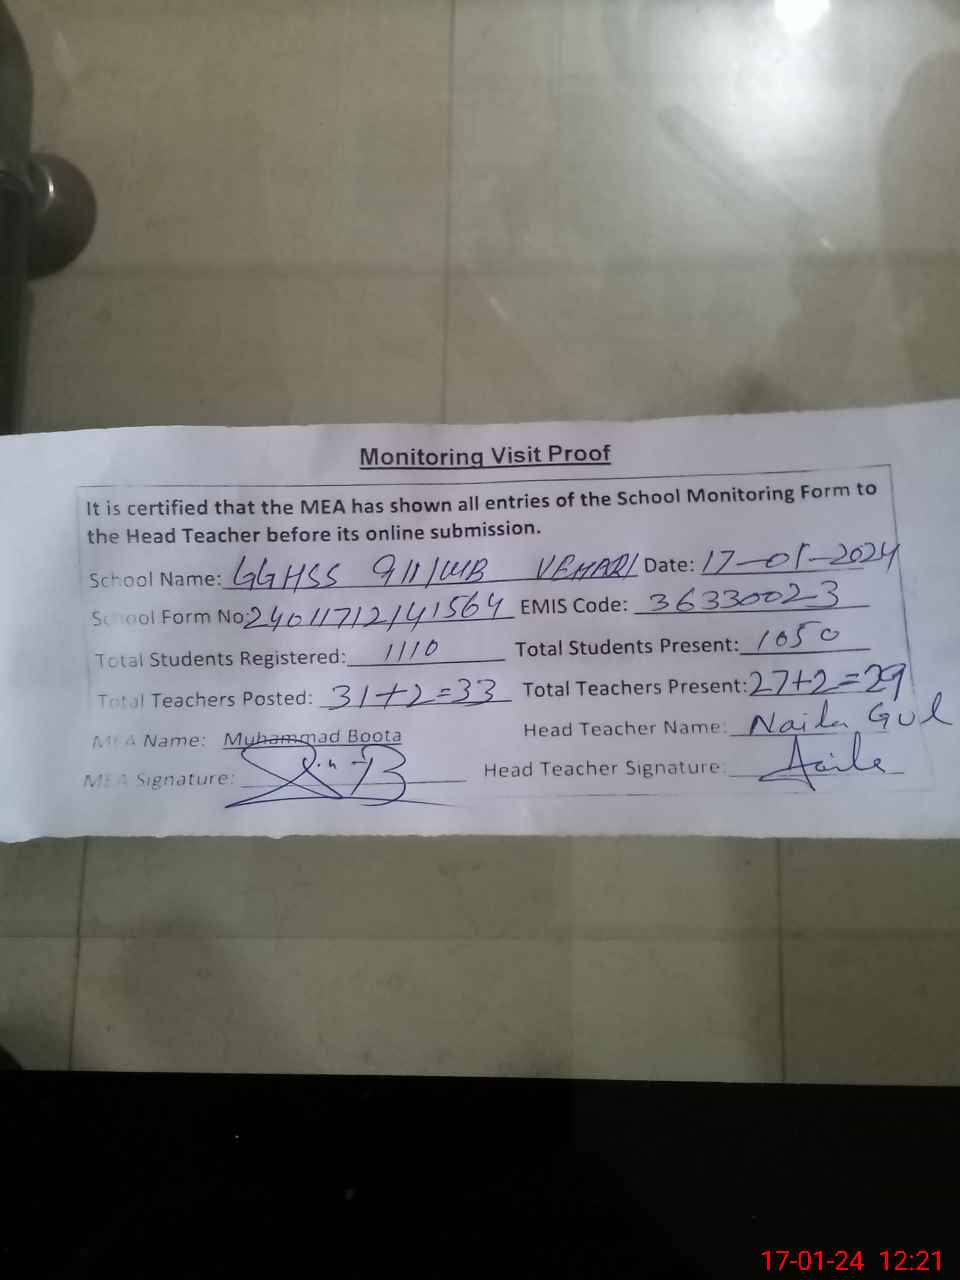 Monitoring Visit Proof
It is certified that the MEA has shown all entries of the School Monitoring Form to
the Head Teacher before its online submission.
School Name: GGHSS 911/WB VEHARI Date: 17-01-2024
School Form No: 24011712141564 EMIS Code: 36330023
Total Students Registered: 1110 Total Students Present: 1050
Total Teachers Posted: 31+2=33 Total Teachers Present: 27+2=29
MEA Name: Muhammad Boota Head Teacher Name: Naila Gul
MEA Signature: Head Teacher Signature: Naila
17-01-24 12:21